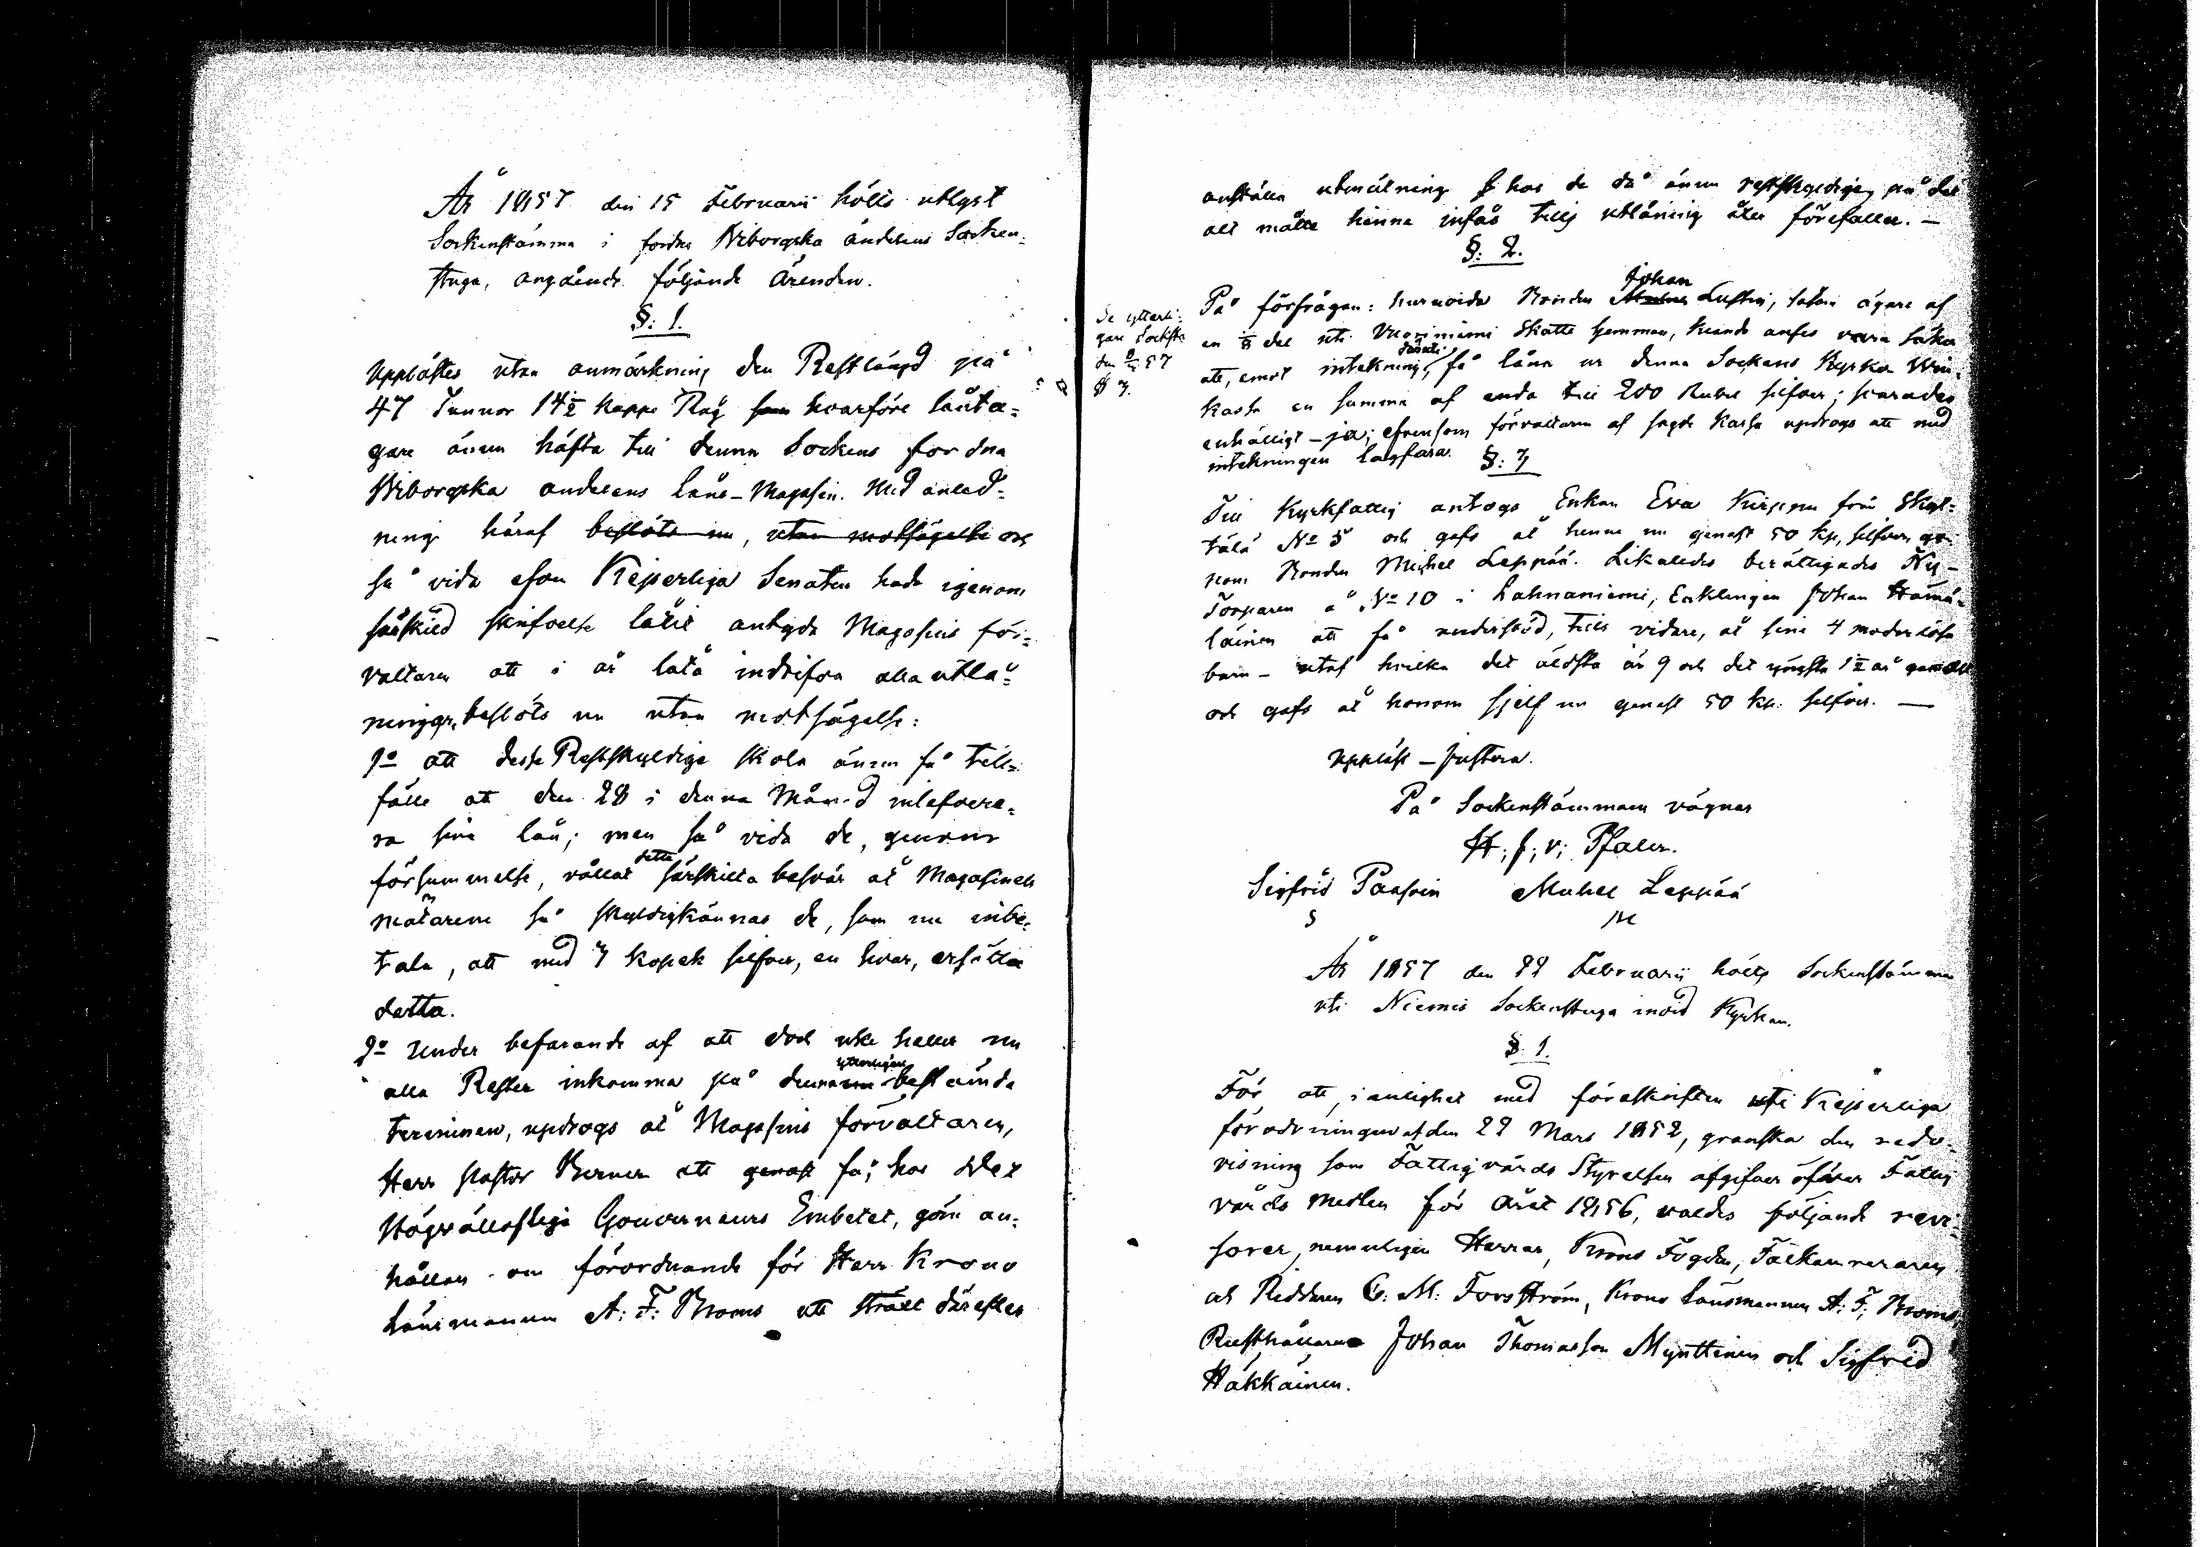 År 1857 den 15 Februarii hölls utlyst
Sockenstämma i fordna Wiborgska andelens Socken-
stuga, angående följande ärenden.
§: 1.
Upplästes utan anmärkning den Restlängd på
47 Tunnor 14½ kappe Råg som hvarföre låuta-
gare ännu häfta till denna Sockens fordna
Wiborgska andelens Låne-Magasin. Med anled-
ning häraf beslöts nu, utan motsägelse och
så vida efsom Kejserliga Senaten hade igenom
särskild skrifvelse låtit antyda Magasins för-
valtaren att i år låta indrifva alla utlå-
ningar, beslöts nu utan motsägelse:
1o att desse Restskyldige skola ännu få till-
fälle att den 28 i denna Månad inlefvere-
ra sine lån; men så vida de, genom
försummelse, vållat detta särskilta besvär åt Magasinets
mätarene så skyldigkännas de, som nu inbe-
tala, att med 3 kopek silfver, en hvar, ersätta
detta.
2o Under befarande af att dock icke heller nu
alla Rester inkomma på denna ytterligare bestämda
terminen, updrogs åt Magasins förvaltaren,
Herr Pastor Berner att genast få, hos det
Högvällofliga Gouverneurs Embetet, göra an-
hållan om förordnande för Herr Krono
Länsmannen A: F: Broms att strält därefter
anställa utmätning hos de då ännu restskyldige, på det
att måtte hinna infås tills utlåning åter förefaller. —
§: 2.
Se ytterli-
gare Sockst.
57
§ 3.
På förfrågan: huruvida Bonden Johan Lustig, såsom ägare af
en ⅛ del uti Vuoriniemi Skatte hemman, kunde anses vara säker
att, emot inteckning därati, få låna ur denna Sockens Kyrko Win-
kassa en summa af ända till 200 Rubel silfver; svarades
enhälligt – ja; äfvensom förvaltaren af sagde kassa updrogs att med
inteckningen lagfara. §: 3
Till Kyrkfattig antogs Enkan Eva Kirjonen från Skyt-
tälä No 5 och gafs åt henne nu genast 50 kp, silfver ge-
nom Bonden Michel Leppää. Likaledes berättigades Ny-
Torparen å No 10 i Lahnaniemi, Enklingen Johan Hämä-
läinen att få understöd, tills vidare, åt sine 4 moderlösa
barn – utaf hvilka det äldsta är 9 och det yngsta 1½ år gammalt
och gafs åt honom sjelf nu genast 50 kp. silfver. —
Uppläst – justera.
På Sockenstämmans vägnar
H; f; v; Pfaler.
Sigfrid Paasoin Michel Leppää
S M
År 1857 den 22 Februarii hölls Sockenstämma
uti Niemis Sockenstuga invid Kyrkan.
§. 1.
För att, i enlighet med föreskriften uti Kejserliga
förordningen af den 22 Mars 1852, granska den redo-
visning som Fattigvårds Styrelsen afgifver öfver Fattig
vårds medlen för året 1856, valdes följande revi-
sorer, nemligen Herrar, Krono Fogden, Fältkamreraren
och Riddaren C: M: Forsström, Krono Länsmannen A: F; Broms,
Rusthållarne Johan Thomasson Mynttinen och Sigfrid
Häkkäinen.